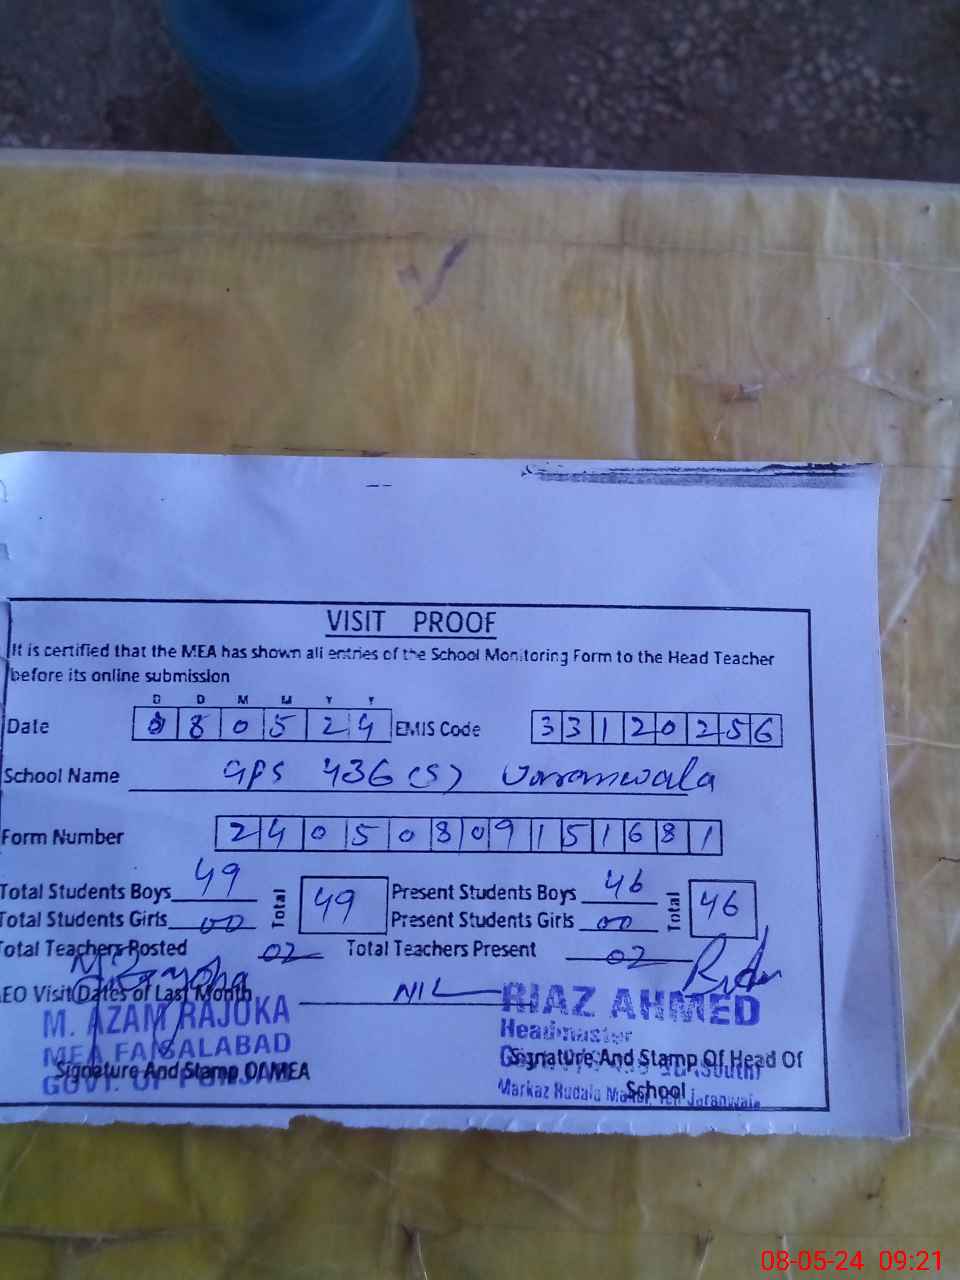 VISIT PROOF
It is certified that the MEA has shown all entries of the School Monitoring Form to the Head Teacher
before its online submission
D D M M Y Y
Date 080524 EMIS Code 33120256
School Name GPS 436 (S)
Form Number 24050809151681
Total Students Boys 49 Total 49 Present Students Boys 46 Total 46
Total Students Girls 00 Present Students Girls 00
Total Teachers Posted 02 Total Teachers Present 02
AEO Visit Dates of Last Month NIL
M. AZAM RAJOKA
MEA FAISALABAD
GOVT. OF PUNJAB
Signature And Stamp Of MEA
RIAZ AHMED
Headmaster
(South)
Markaz Rudala Teh Jaranwala
Signature And Stamp Of Head Of
School
08-05-24 09:21